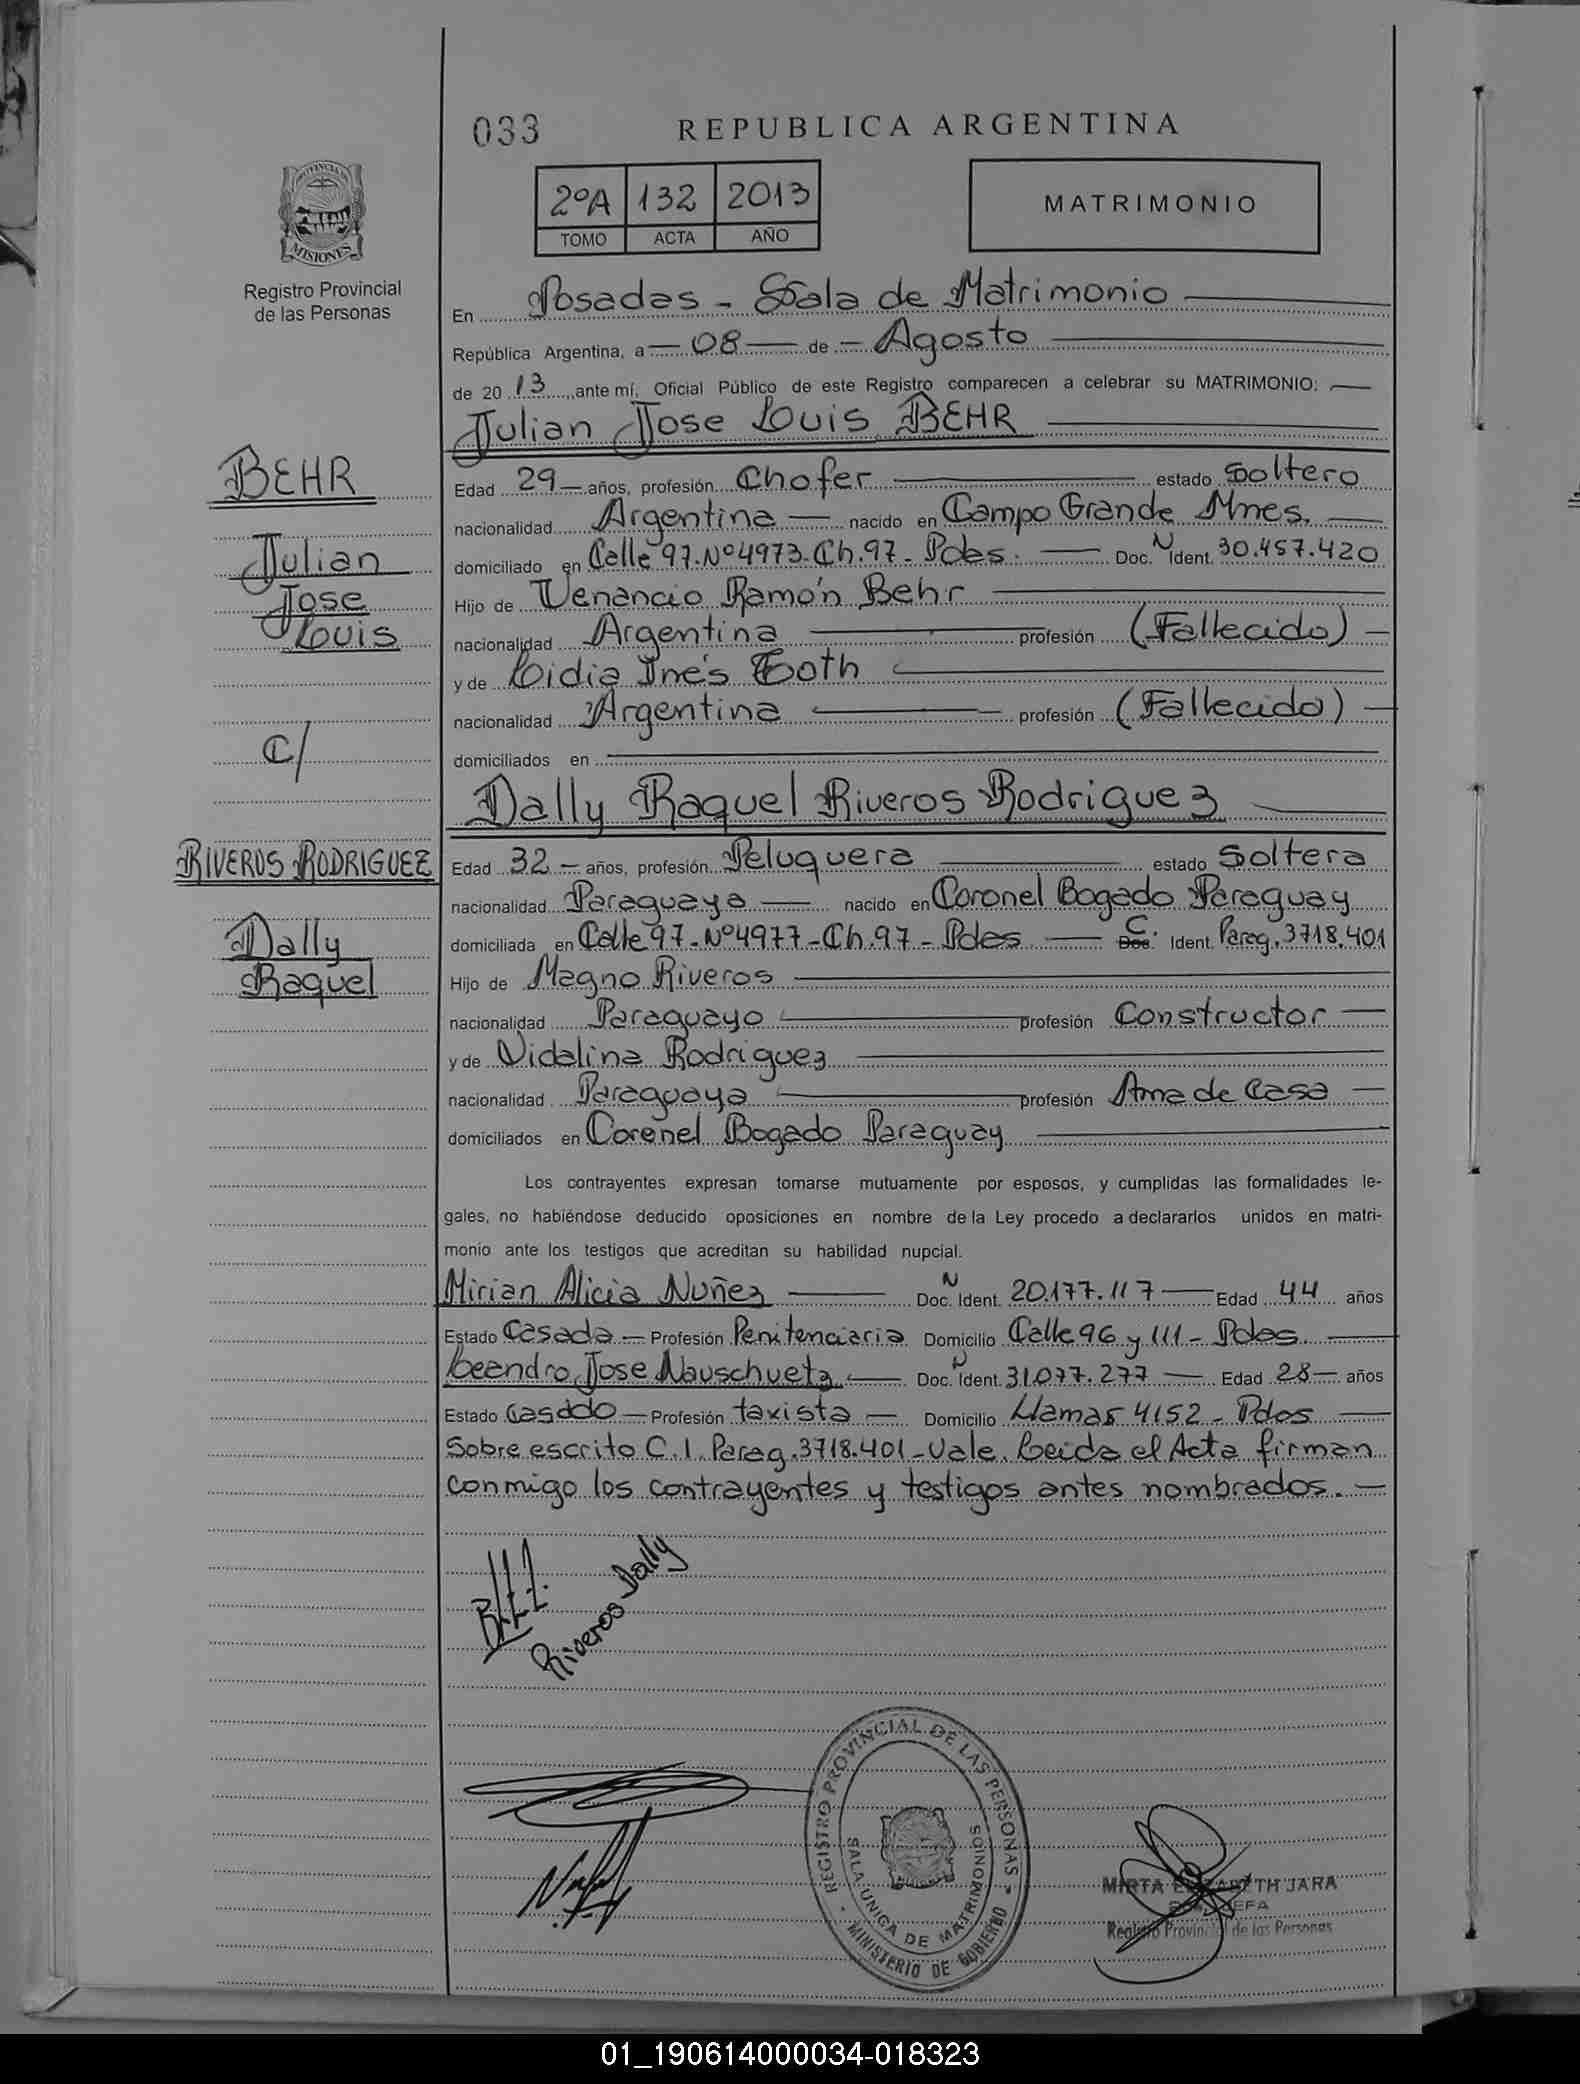 033
REPUBLICA ARGENTINA
2ºA 132 2013
TOMO ACTA AÑO
MATRIMONIO
PROVINCIA DE
MISIONES
Registro Provincial
de las Personas
En Posadas - Sala de Matrimonio
República Argentina, a — 08 — de — Agosto
de 20 13 ante mí, Oficial Público de este Registro comparecen a celebrar su MATRIMONIO:
Julian Jose Louis BEHR
BEHR
Julian
Jose
Louis
C/
RIVEROS RODRIGUEZ
Dally
Raquel
Edad 29 — años, profesión Chofer — estado Soltero
nacionalidad Argentina — nacido en Campo Grande Mnes. —
domiciliado en Calle 97-Nº4973-Ch.97- Pdas. — Doc. N Ident. 30.457.420
Hijo de Venancio Ramón Behr
nacionalidad Argentina — profesión (Fallecido) —
y de Lidia Inés Toth
nacionalidad Argentina — profesión (Fallecido) —
domiciliados en —
Dally Raquel Riveros Rodriguez
Edad 32 — años, profesión Peluquera — estado Soltera
nacionalidad Paraguaya — nacido en Coronel Bogado Paraguay
domiciliada en Calle 97-Nº4977-Ch.97- Pdas — Doc. C. Ident. Parag. 3718.401
Hijo de Magno Riveros
nacionalidad Paraguayo — profesión Constructor —
y de Vidalina Rodriguez
nacionalidad Paraguaya — profesión Ama de Casa —
domiciliados en Coronel Bogado Paraguay
Los contrayentes expresan tomarse mutuamente por esposos, y cumplidas las formalidades le-
gales, no habiéndose deducido oposiciones en nombre de la Ley procedo a declararlos unidos en matri-
monio ante los testigos que acreditan su habilidad nupcial.
Mirian Alicia Nuñez — Doc. N Ident. 20.177.117 — Edad 44 años
Estado Casada — Profesión Penitenciaria Domicilio Calle 96 y 111 - Pdas —
Leandro Jose Nauschuetz — Doc. N Ident. 31.077.277 — Edad 28 — años
Estado Casado — Profesión taxista — Domicilio Llamas 4152 - Pdas —
Sobre escrito C.I. Parag. 3718.401 - Vale. Leida el Acta firman
conmigo los contrayentes y testigos antes nombrados. —
Riveros Dally
REGISTRO PROVINCIAL DE LAS PERSONAS
SALA UNICA DE MATRIMONIOS
MINISTERIO DE GOBIERNO
MIRTA ELIZABETH JARA
Registro Provincial de las Personas
01_190614000034-018323